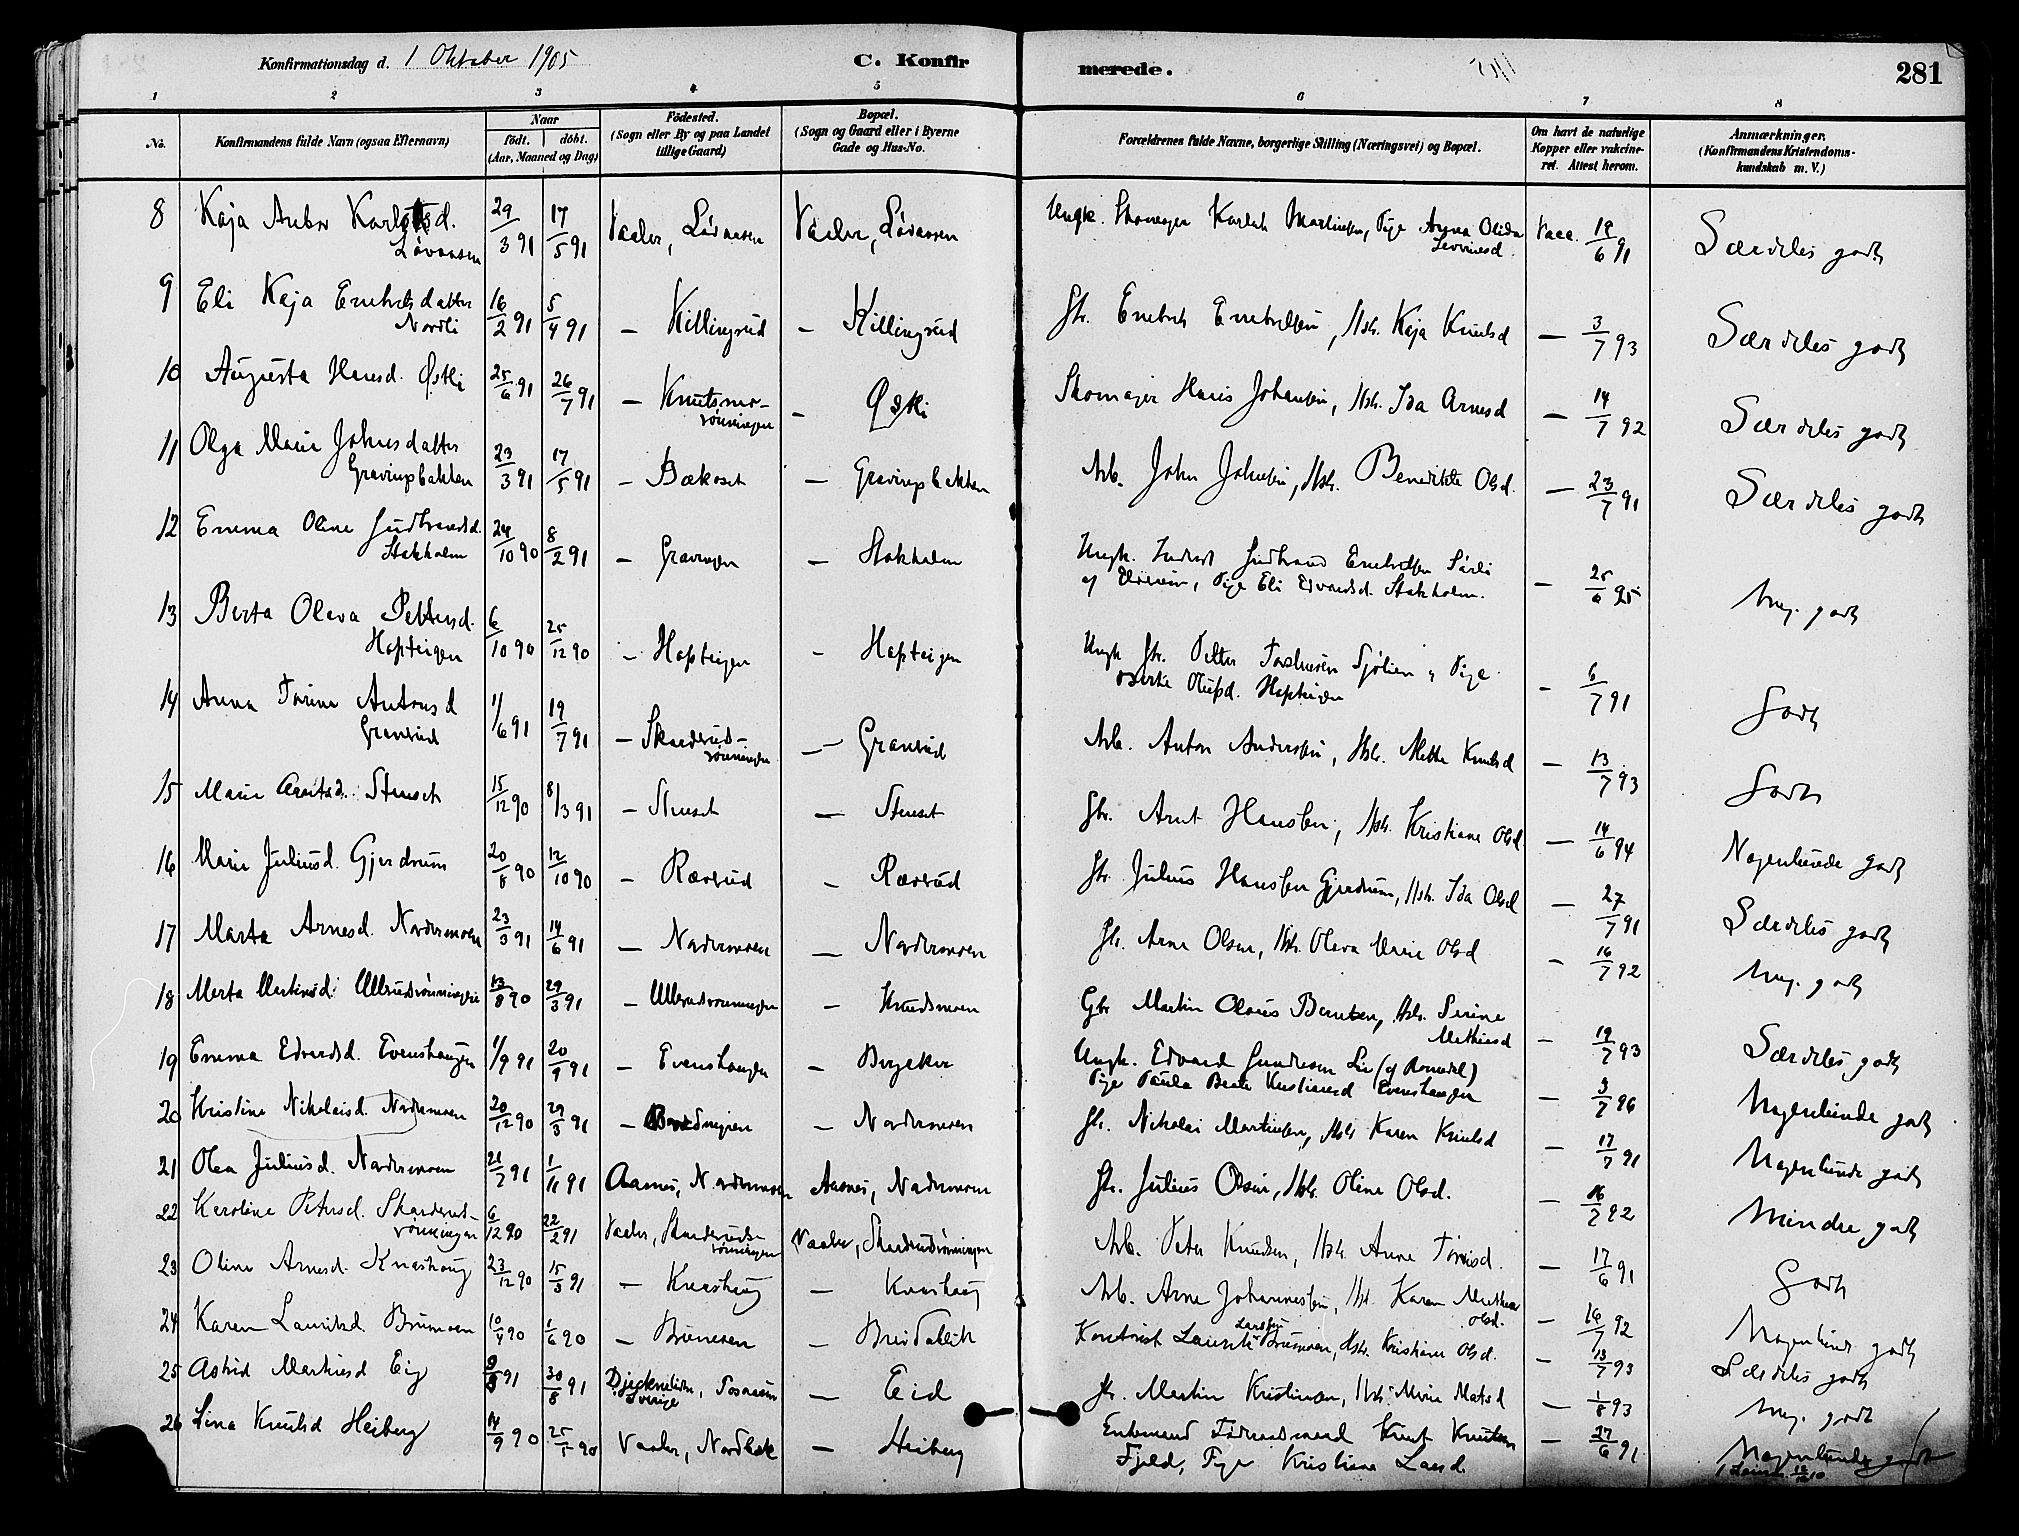 Konfirmationsdag d. 1 Oktober 1905
C. Konfirmerede.
281
1 2 3 4 5 6 7 8
No.
Konfirmandens fulde Navn (ogsaa Efternavn)
Naar
födt. döbt.
(Aar, Maaned og Dag)
Födested.
(Sogn eller By og paa Landet
tillige Gaard)
Bopæl.
(Sogn og Gaard eller i Byerne
Gade og Hus-No.
Forældrenes fulde Navne, borgerlige Stilling (Næringsvei) og Bopæl.
Om havt de naturlige
Kopper eller vakcine-
ret. Attest herom.
Anmærkninger.
(Konfirmandens Kristendoms-
kundskab m. V.)
8 Kaja 29/3 91 17/5 91 Vaaler, Løvaasen Vaaler, Løvaasen Ungk. Skomager Martinsen, Pige Anna Vacc. 19/6 91 Særdeles godt
Løvaasen
9 Eli Kaja Embretsdatter 16/2 91 5/4 91 — Killingrud — Killingrud Embret Embretsen, Hstr. Kaja Knutsd — 3/7 93 Særdeles godt
Nordli
10 Augusta Hansd. Østli 25/6 91 26/7 91 — Knutsmo- — Østli Skomager Hans Johansen, Hstr. Ida Arnesd — 14/7 92 Særdeles godt
rönningen
11 Olga Marie Johnsdatter 23/3 91 17/5 91 — Bækoset — Gravingbakken Arb. John Johnsen, Hstr. Benedikte Olsd. — 23/7 91 Særdeles godt
Gravingbakken
12 Emma Oline Gudbrandsd. 24/10 90 8/2 91 — Gravingen — Stokholm Ungk. Gudbrand Embretsen
Stokholm af Elverum, Pige Eli Edvardsd. Stokholm. — 25/6 95 Meg. godt
13 Berta Oleva Pettersd. 6/10 90 25/12 90 — Hapteigen — Hapteigen Ungk. Petter Sjölien og Pige
Hapteigen Hapteigen — 6/7 91 Godt
14 Anna Antonsd 1/6 91 19/7 91 — Skarderud- — Granerud Arb. Anton Andersen, Hstr. Mette Knutsd — 13/7 93 Godt
Granerud rönningen
15 Marie Arntsd. Stenset 15/12 90 8/3 91 — Stenset — Stenset Arnt Hansen, Hstr. Kristiane Olsd. — 14/6 94 Nogenlunde godt
16 Marie Juliusd. Gjerdrum 20/8 90 12/10 90 — Rævrud — Rævrud Julius Hansen Gjerdrum, Hstr. Ida Olsd — 27/7 91 Særdeles godt
17 Marta Arnesd. Nordermoen 23/3 91 14/6 91 — Nordermoen — Nordermoen Arne Olsen, Hstr. Oleva Marie Olsd — 16/7 92 Meg. godt
18 Marta Martinsd. Ullerudrönningen 13/8 90 29/3 91 — Ullerudrönningen — Knudsmoen Gbr Martin Olaus Berntsen, Hstr. Serine
Mathiasd — 19/7 93 Særdeles godt
19 Emma Edvardsd. Evenshaugen 1/9 91 20/9 91 — Evenshaugen — Bergeker Ungk. Edvard Gundersen Lie (af Romedal)
Pige Paula Beate Kristiansd Evenshaugen — 3/7 96 Nogenlunde godt
20 Kristine Nikolaisd. Nordermoen 20/12 90 29/3 91 — — Nordermoen Nikolai Martinsen, Hstr Karen Knutsd — 17/7 91 Nogenlunde godt
21 Olea Juliusd. Nordermoen 21/7 91 1/11 91 Aasnes, Nordermoen Aasnes, Nordermoen Julius Olsen, Hstr. Oline Olsd. — 16/7 92 Mindre godt
22 Karoline Petersd. Skarderud- 6/12 90 22/2 91 Vaaler, Skarderuds- Vaaler, Skarderudrönningen Arb. Peter Knudsen, Hstr Anne — 17/6 91 Godt
rönningen rönningen
23 Oline Arnesd. Knashaug 23/12 90 15/3 91 — Knashaug — Knashaug Arb. Arne Johannesen, Hstr. Karen Mathea
Olsd. — 16/7 92 Nogenlunde godt
24 Karen Lauritsd. Brumoen 10/4 90 1/6 90 — Brumoen — Larsen
Laurits Brumoen, Hstr. Kristiane Olsd. — 13/7 93 Særdeles godt
25 Astrid Martinsd Eig 9/8 91 30/8 91 — Eid Martin Kristiansen, Hstr. Marie Matsd — 1/8 93 Meg. godt
Sverige
26 Lina Knutsd Heiberg 14/9 90 Vaaler, — Heiberg Enkemand Knut Knutsen
Fjeld, Pige Kristiane Larsd — 27/6 91 Nogenlunde godt